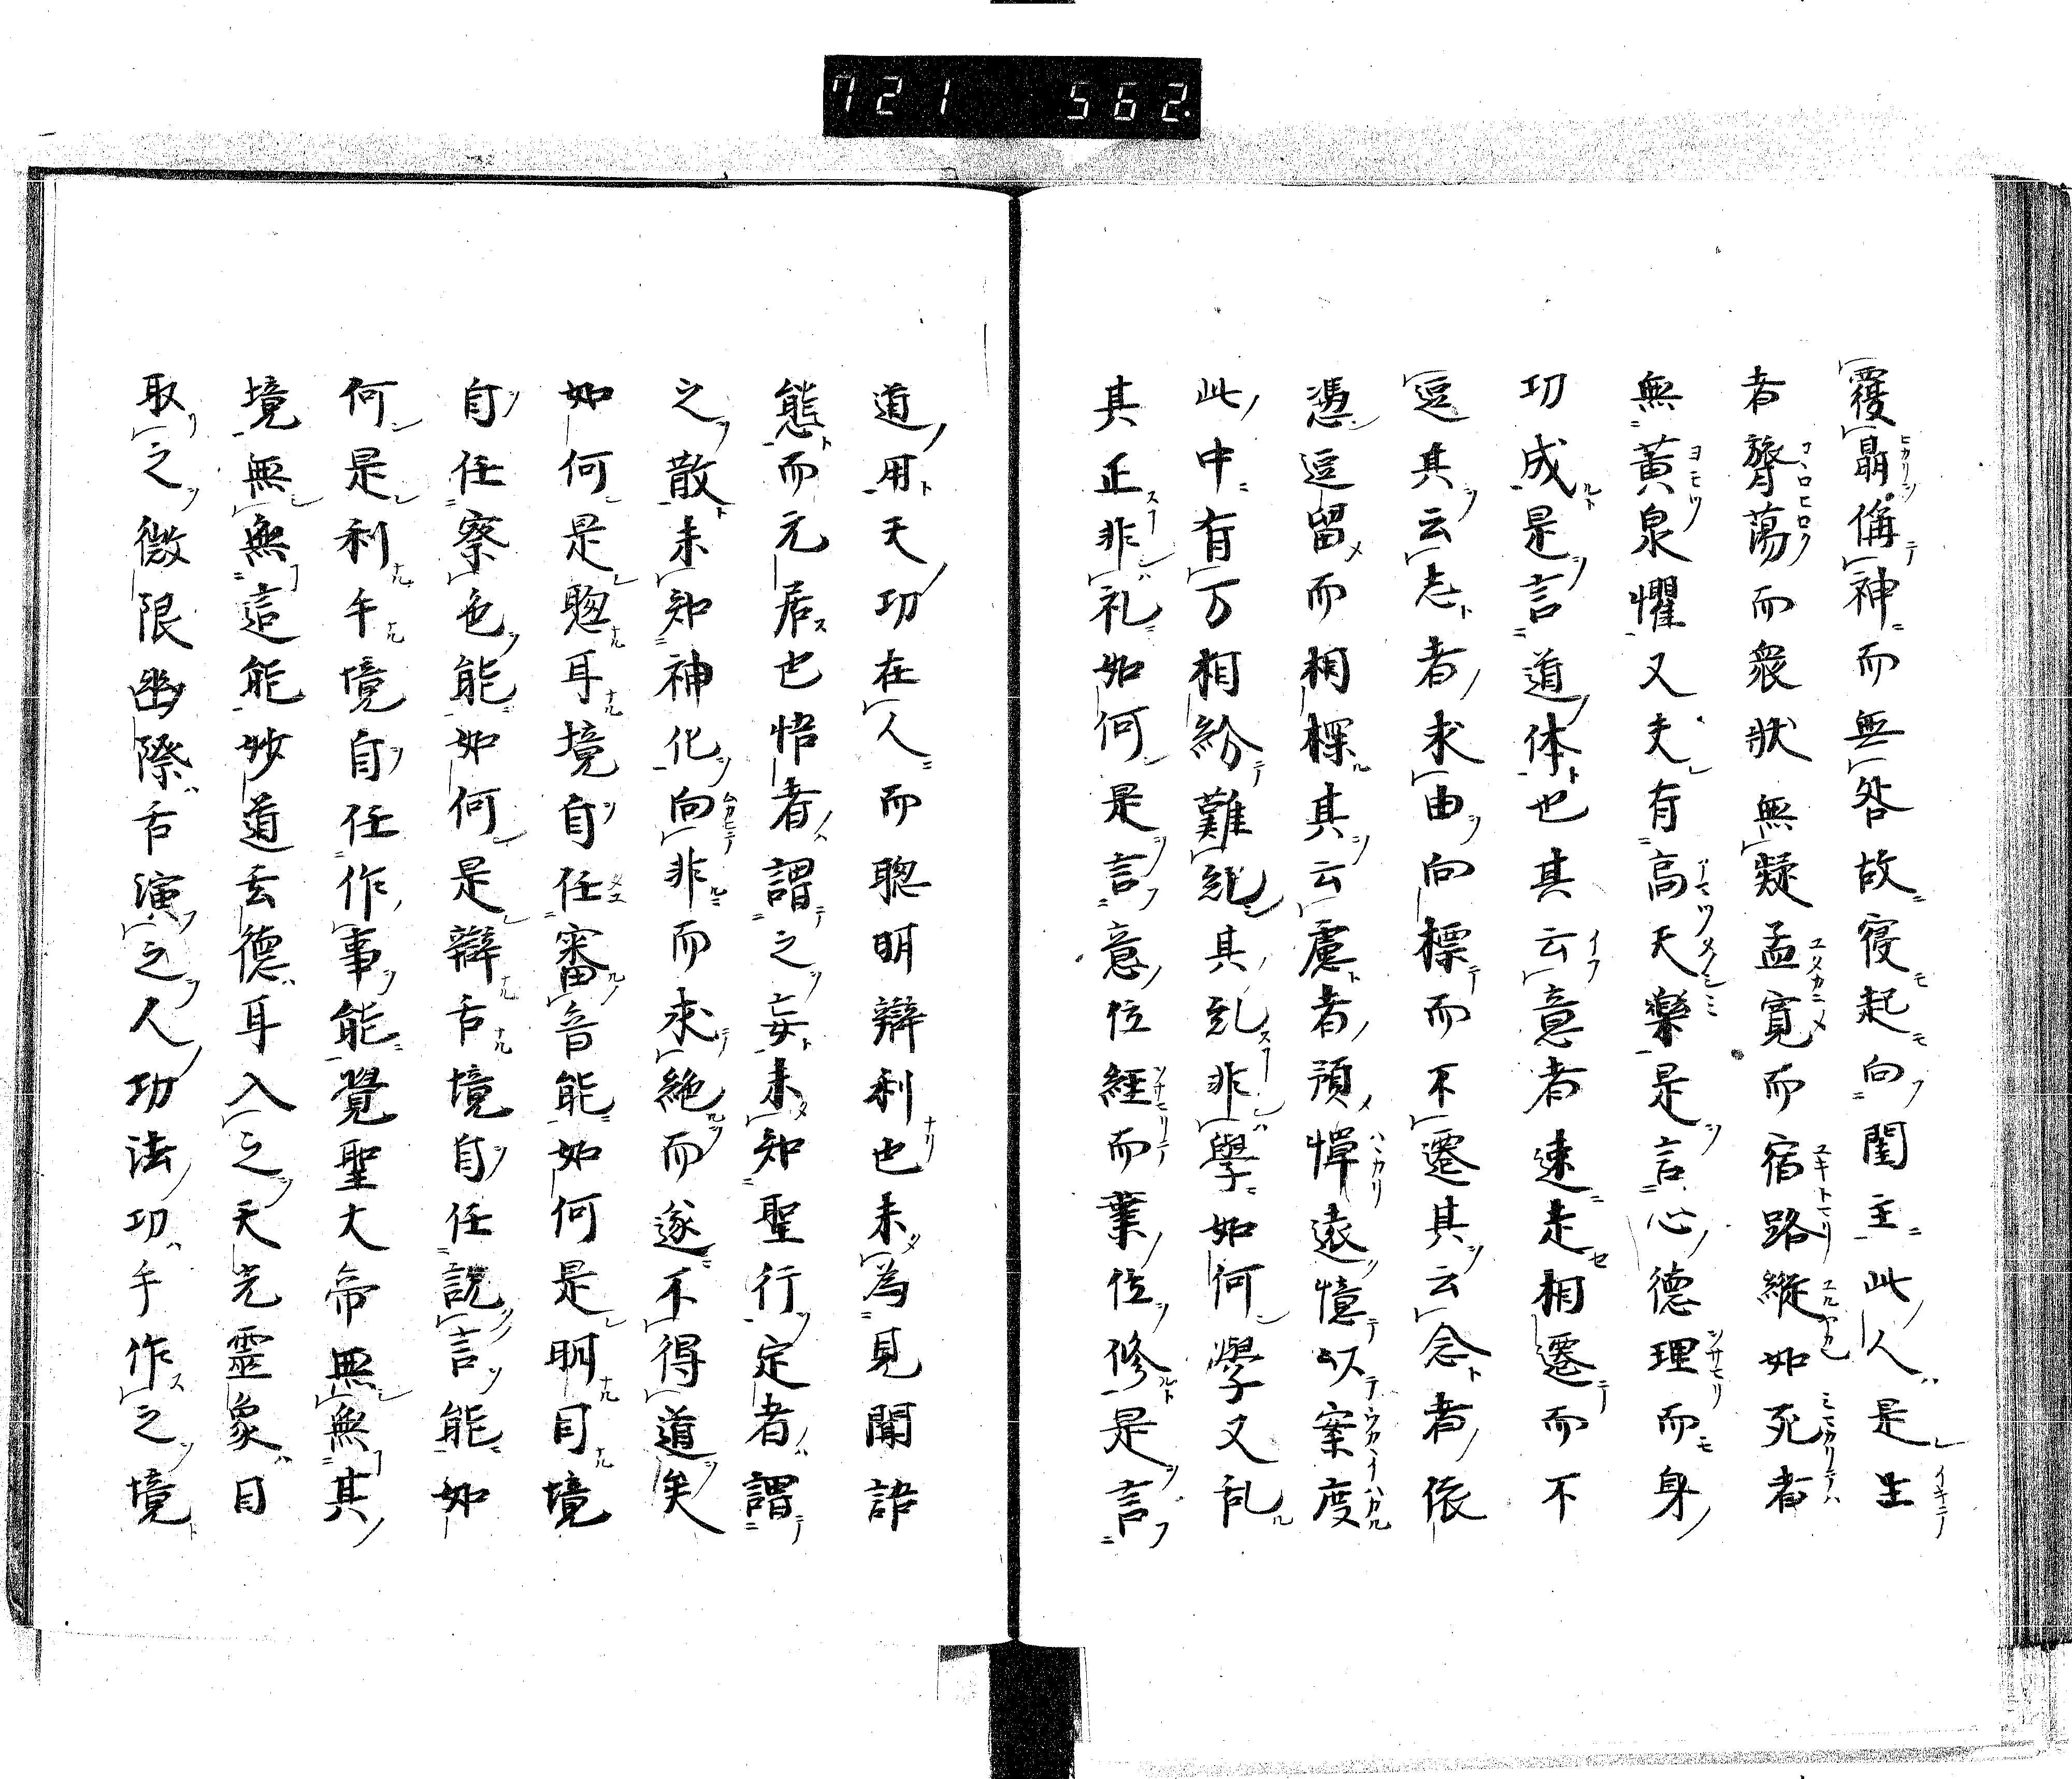 721 562
覆聶備神而無咎故寝起向闇主此人是生
者膐蕩而衆狀無疑孟寛而宿路縦如死者
無黄泉懼又夫有高天樂是言心德理而身
功成是言道体也其云意者速走相遷而不
逗其云志者求由向標而不遷其云念者依
憑逗留而相標其云慮者預憚遠憶以案度
此中有万相紛難乱其乱非學如何學又乱
其正非礼如何是言意位經而業位修是言
道用天功在人而聰明辯利也未為見聞詰
態而元居也悟者謂之妄未知聖行定者謂
之散未知神化向非而求絶而遂不得道矣
如何是聰耳境自任審音能如何是明目境
自任察色能如何是辯舌境自任説言能如
何是利手境自任作事能覺聖大帝無無其
境無無這能妙道玄德耳入之天光靈象目
取之微限幽際舌演之人功法功手作之境